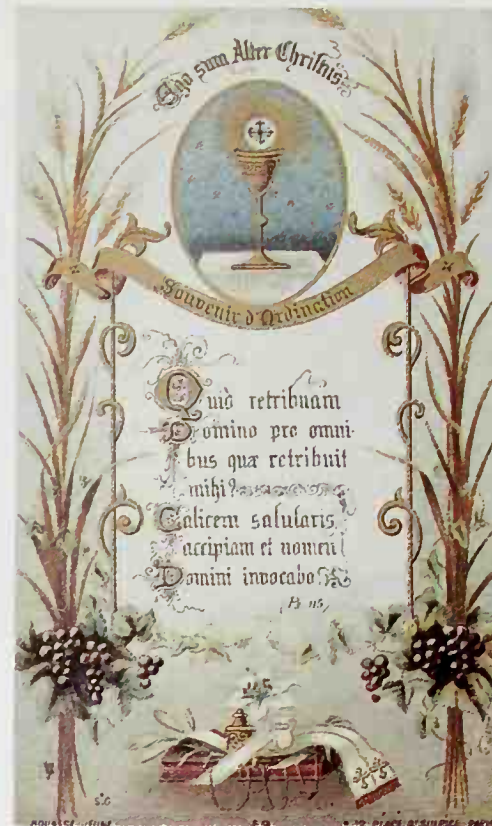 Ego sum Alter Christus
Souvenir d'Ordination
Quid retribuam
Domino pro omni-
bus quæ retribuit
mihi?
Calicem salutaris
accipiam et nomen
Domini invocabo
Ps 115
S.G
PLACE ST SULPICE PARIS